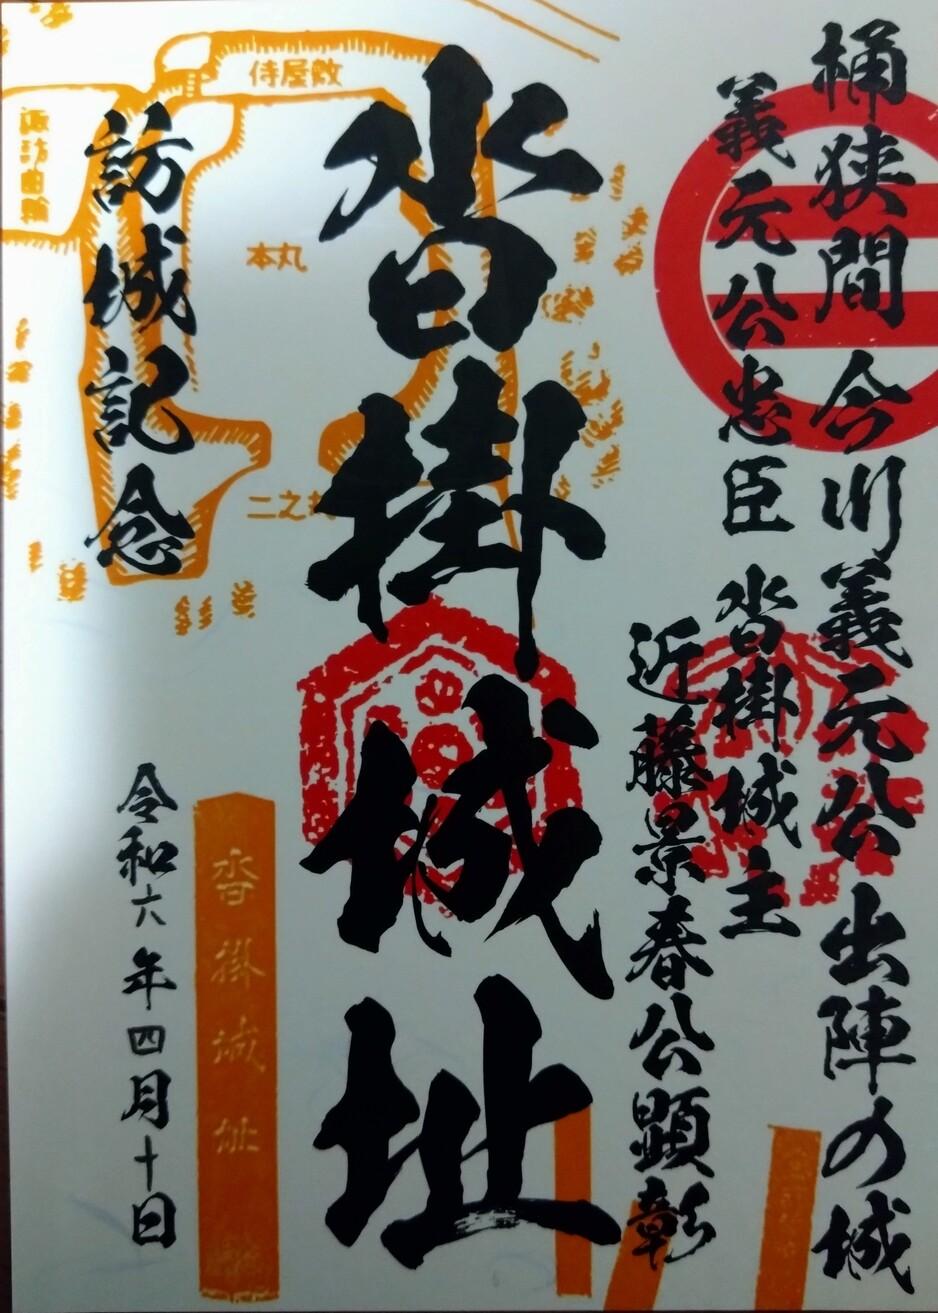 桶狭間 今川義元公出陣の城
義元公忠臣 沓掛城主
近藤景春公顕彰
沓掛城址
訪城記念
令和六年四月十日
侍屋敷
諏訪曲輪
本丸
二之丸
沓掛城址